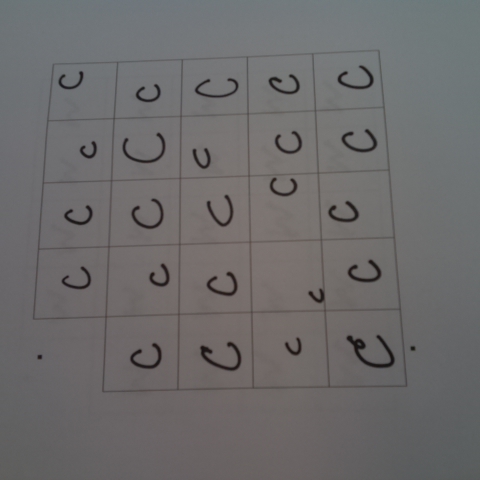 C C C C C
C C C C C
C C C C C
C C C C C
C C C C